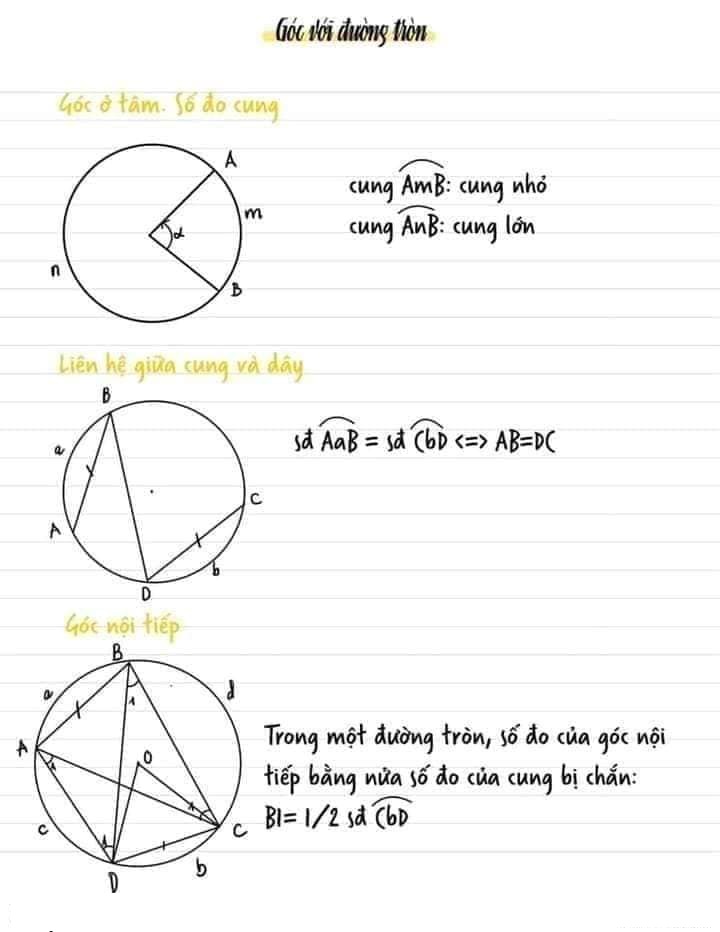 Góc với đường tròn
Góc ở tâm. Số đo cung
A
cung AmB: cung nhỏ
m
cung AnB: cung lớn
α
n
B
Liên hệ giữa cung và dây
B
a
sđ AaB = sđ CbD <=> AB=DC
C
A
b
D
Góc nội tiếp
B
a
1
d
A
O
Trong một đường tròn, số đo của góc nội
1
tiếp bằng nửa số đo của cung bị chắn:
1
B1= 1/2 sđ CbD
c
C
1
b
D